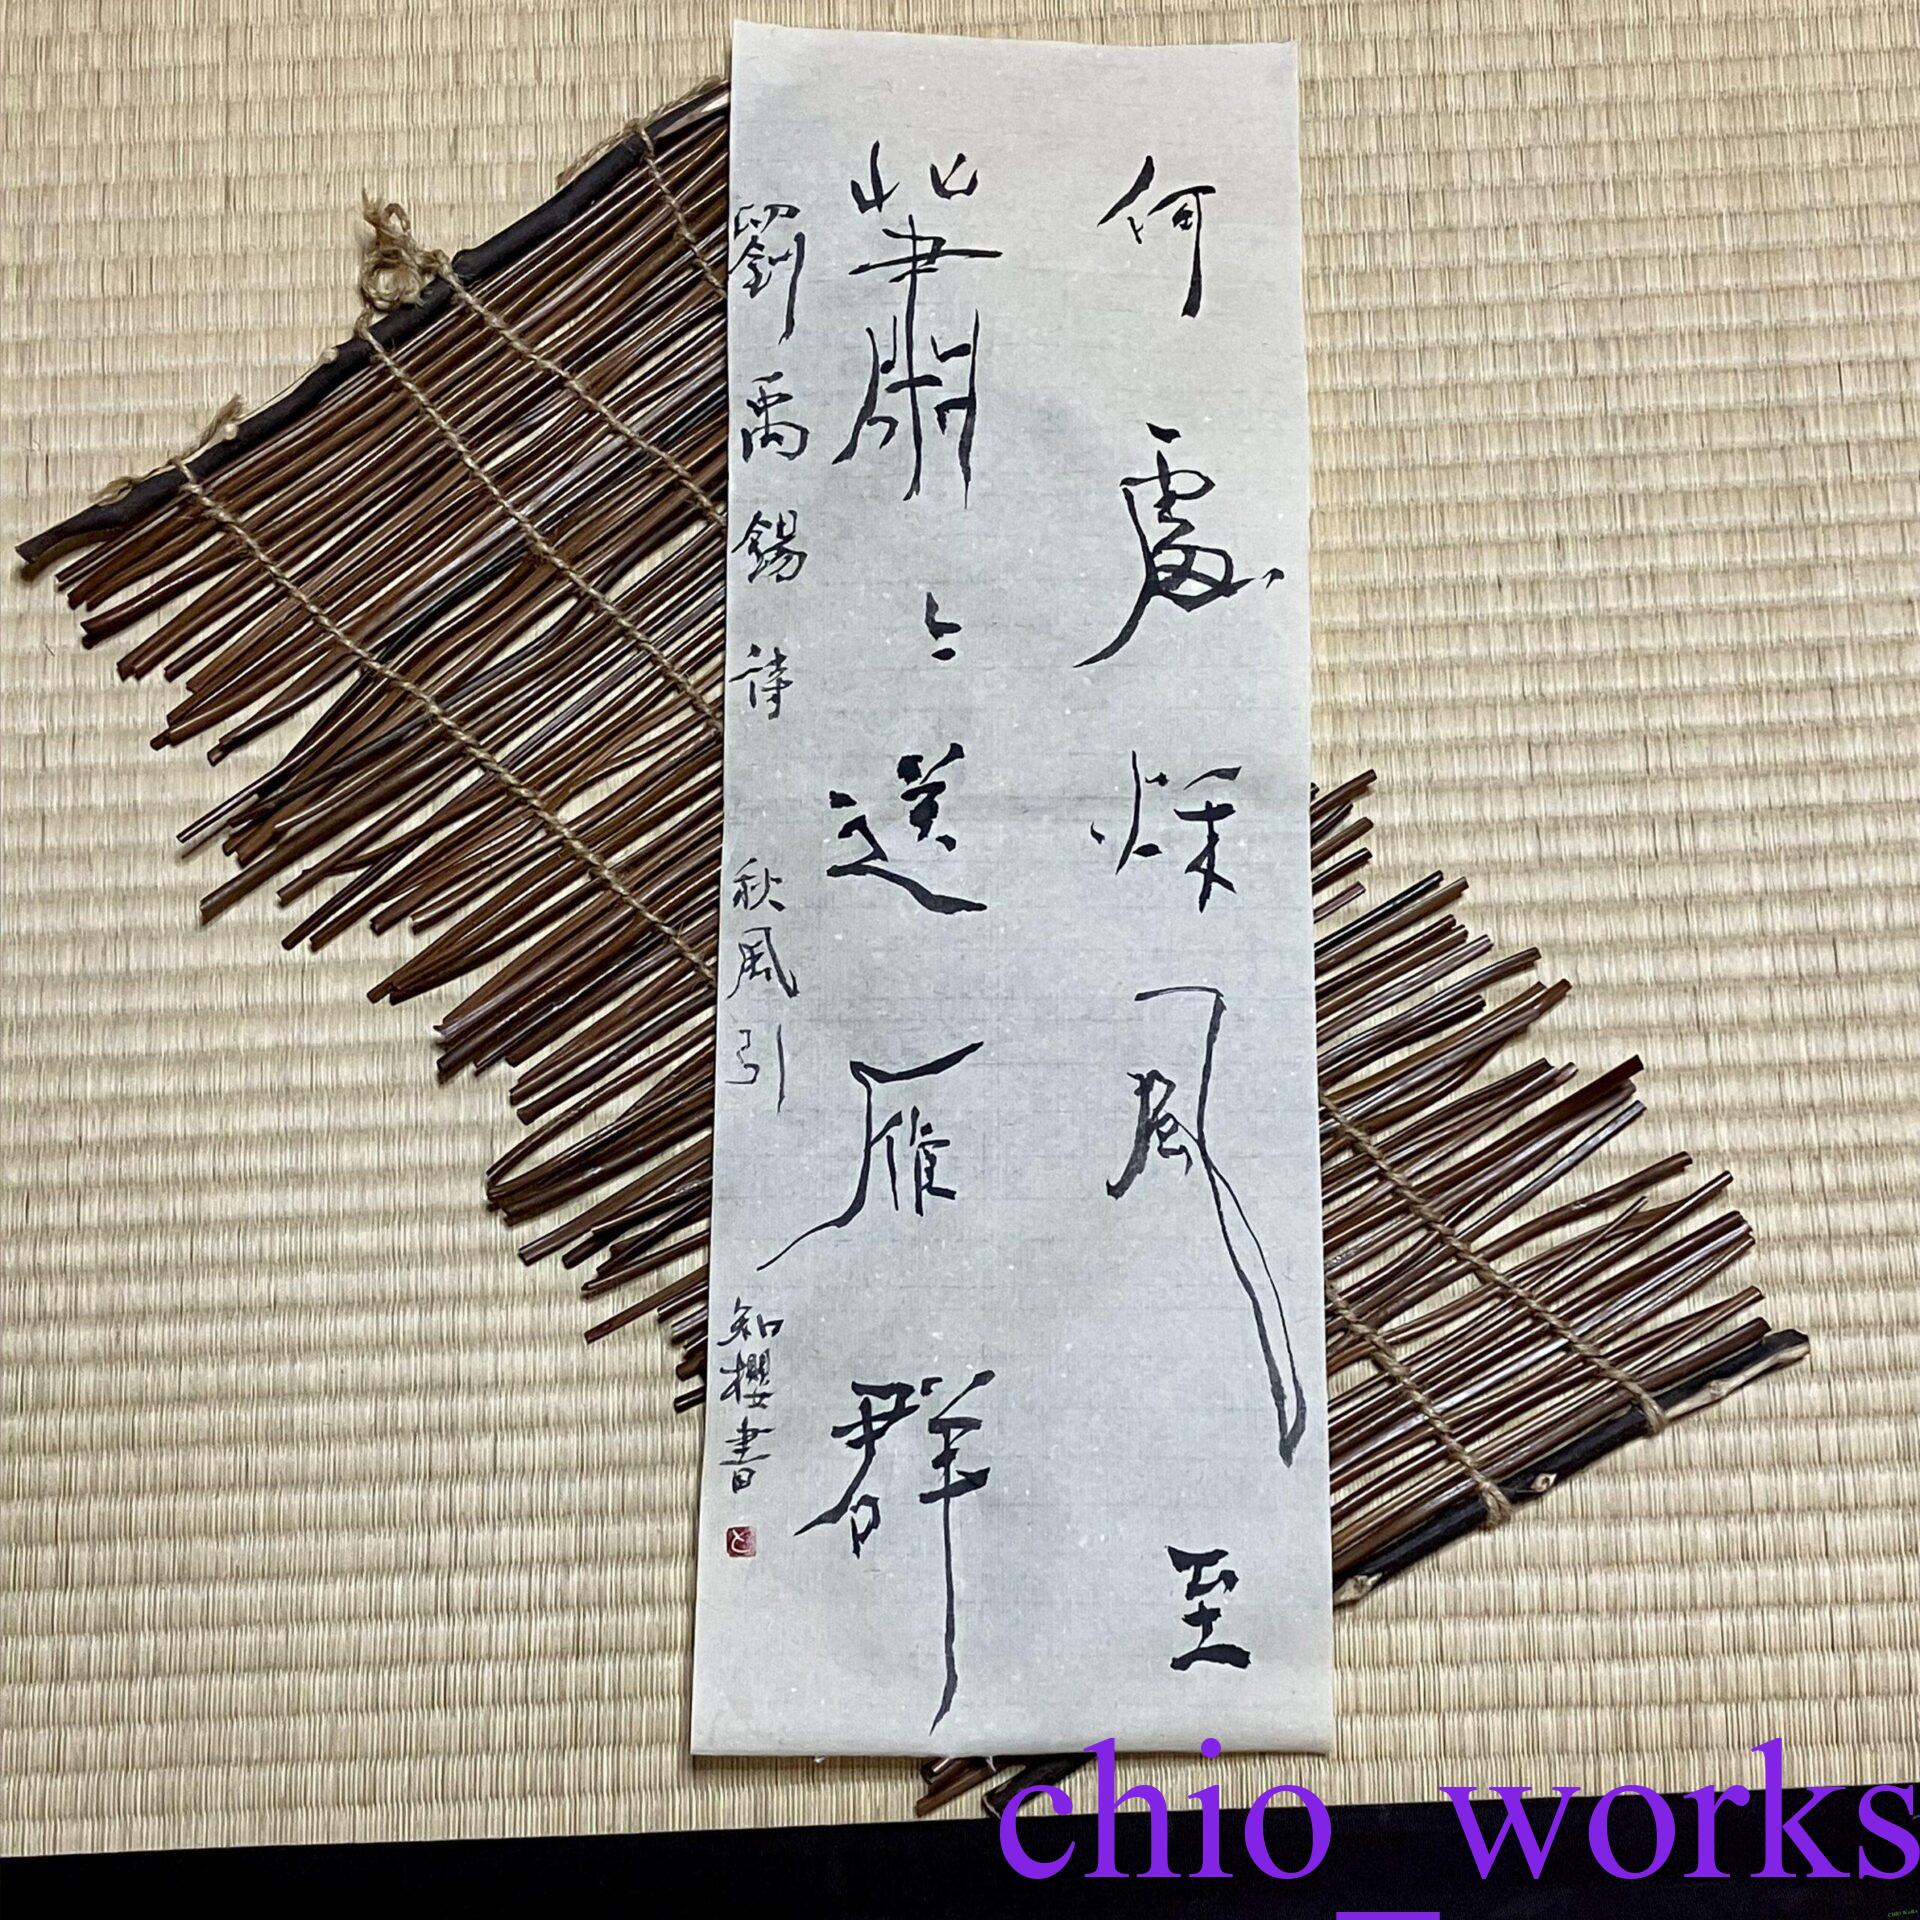 何處秌風至
蕭〻送雁群
劉禹錫詩 秋風引 知櫻書
と
chio_works